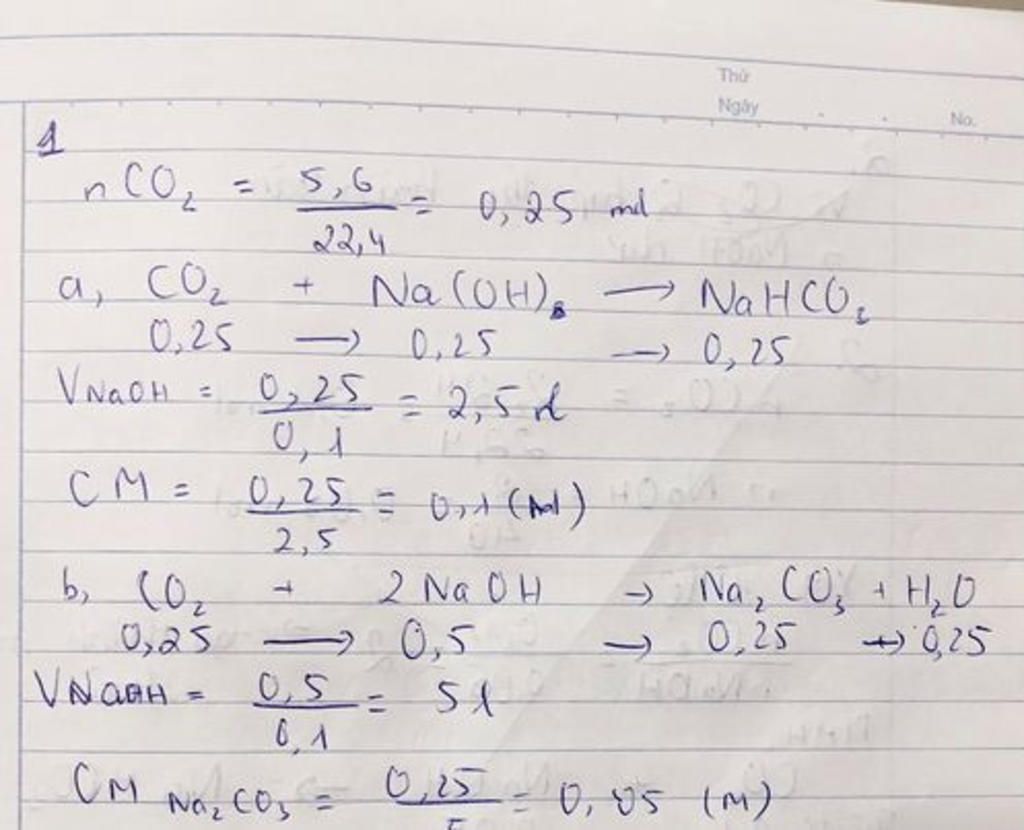 Thứ
Ngày
No.
1
nCO₂ = 5,6 / 22,4 = 0,25 mol
a, CO₂ + Na(OH) → NaHCO₃
0,25 → 0,25 → 0,25
VNaOH = 0,25 / 0,1 = 2,5 l
CM = 0,25 / 2,5 = 0,1 (M)
b, CO₂ + 2NaOH → Na₂CO₃ + H₂O
0,25 → 0,5 → 0,25 → 0,25
VNaOH = 0,5 / 0,1 = 5l
CM Na₂CO₃ = 0,25 / 5 = 0,05 (M)